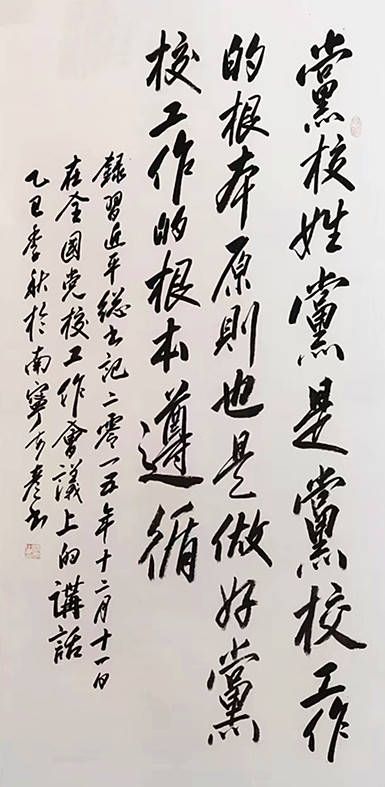 黨校姓黨是黨校工作
的根本原則也是做好黨
校工作的根本遵循
錄習近平総书记二零一五年十二月十一日
在全國党校工作會議上的講話
乙巳季秋於南寧